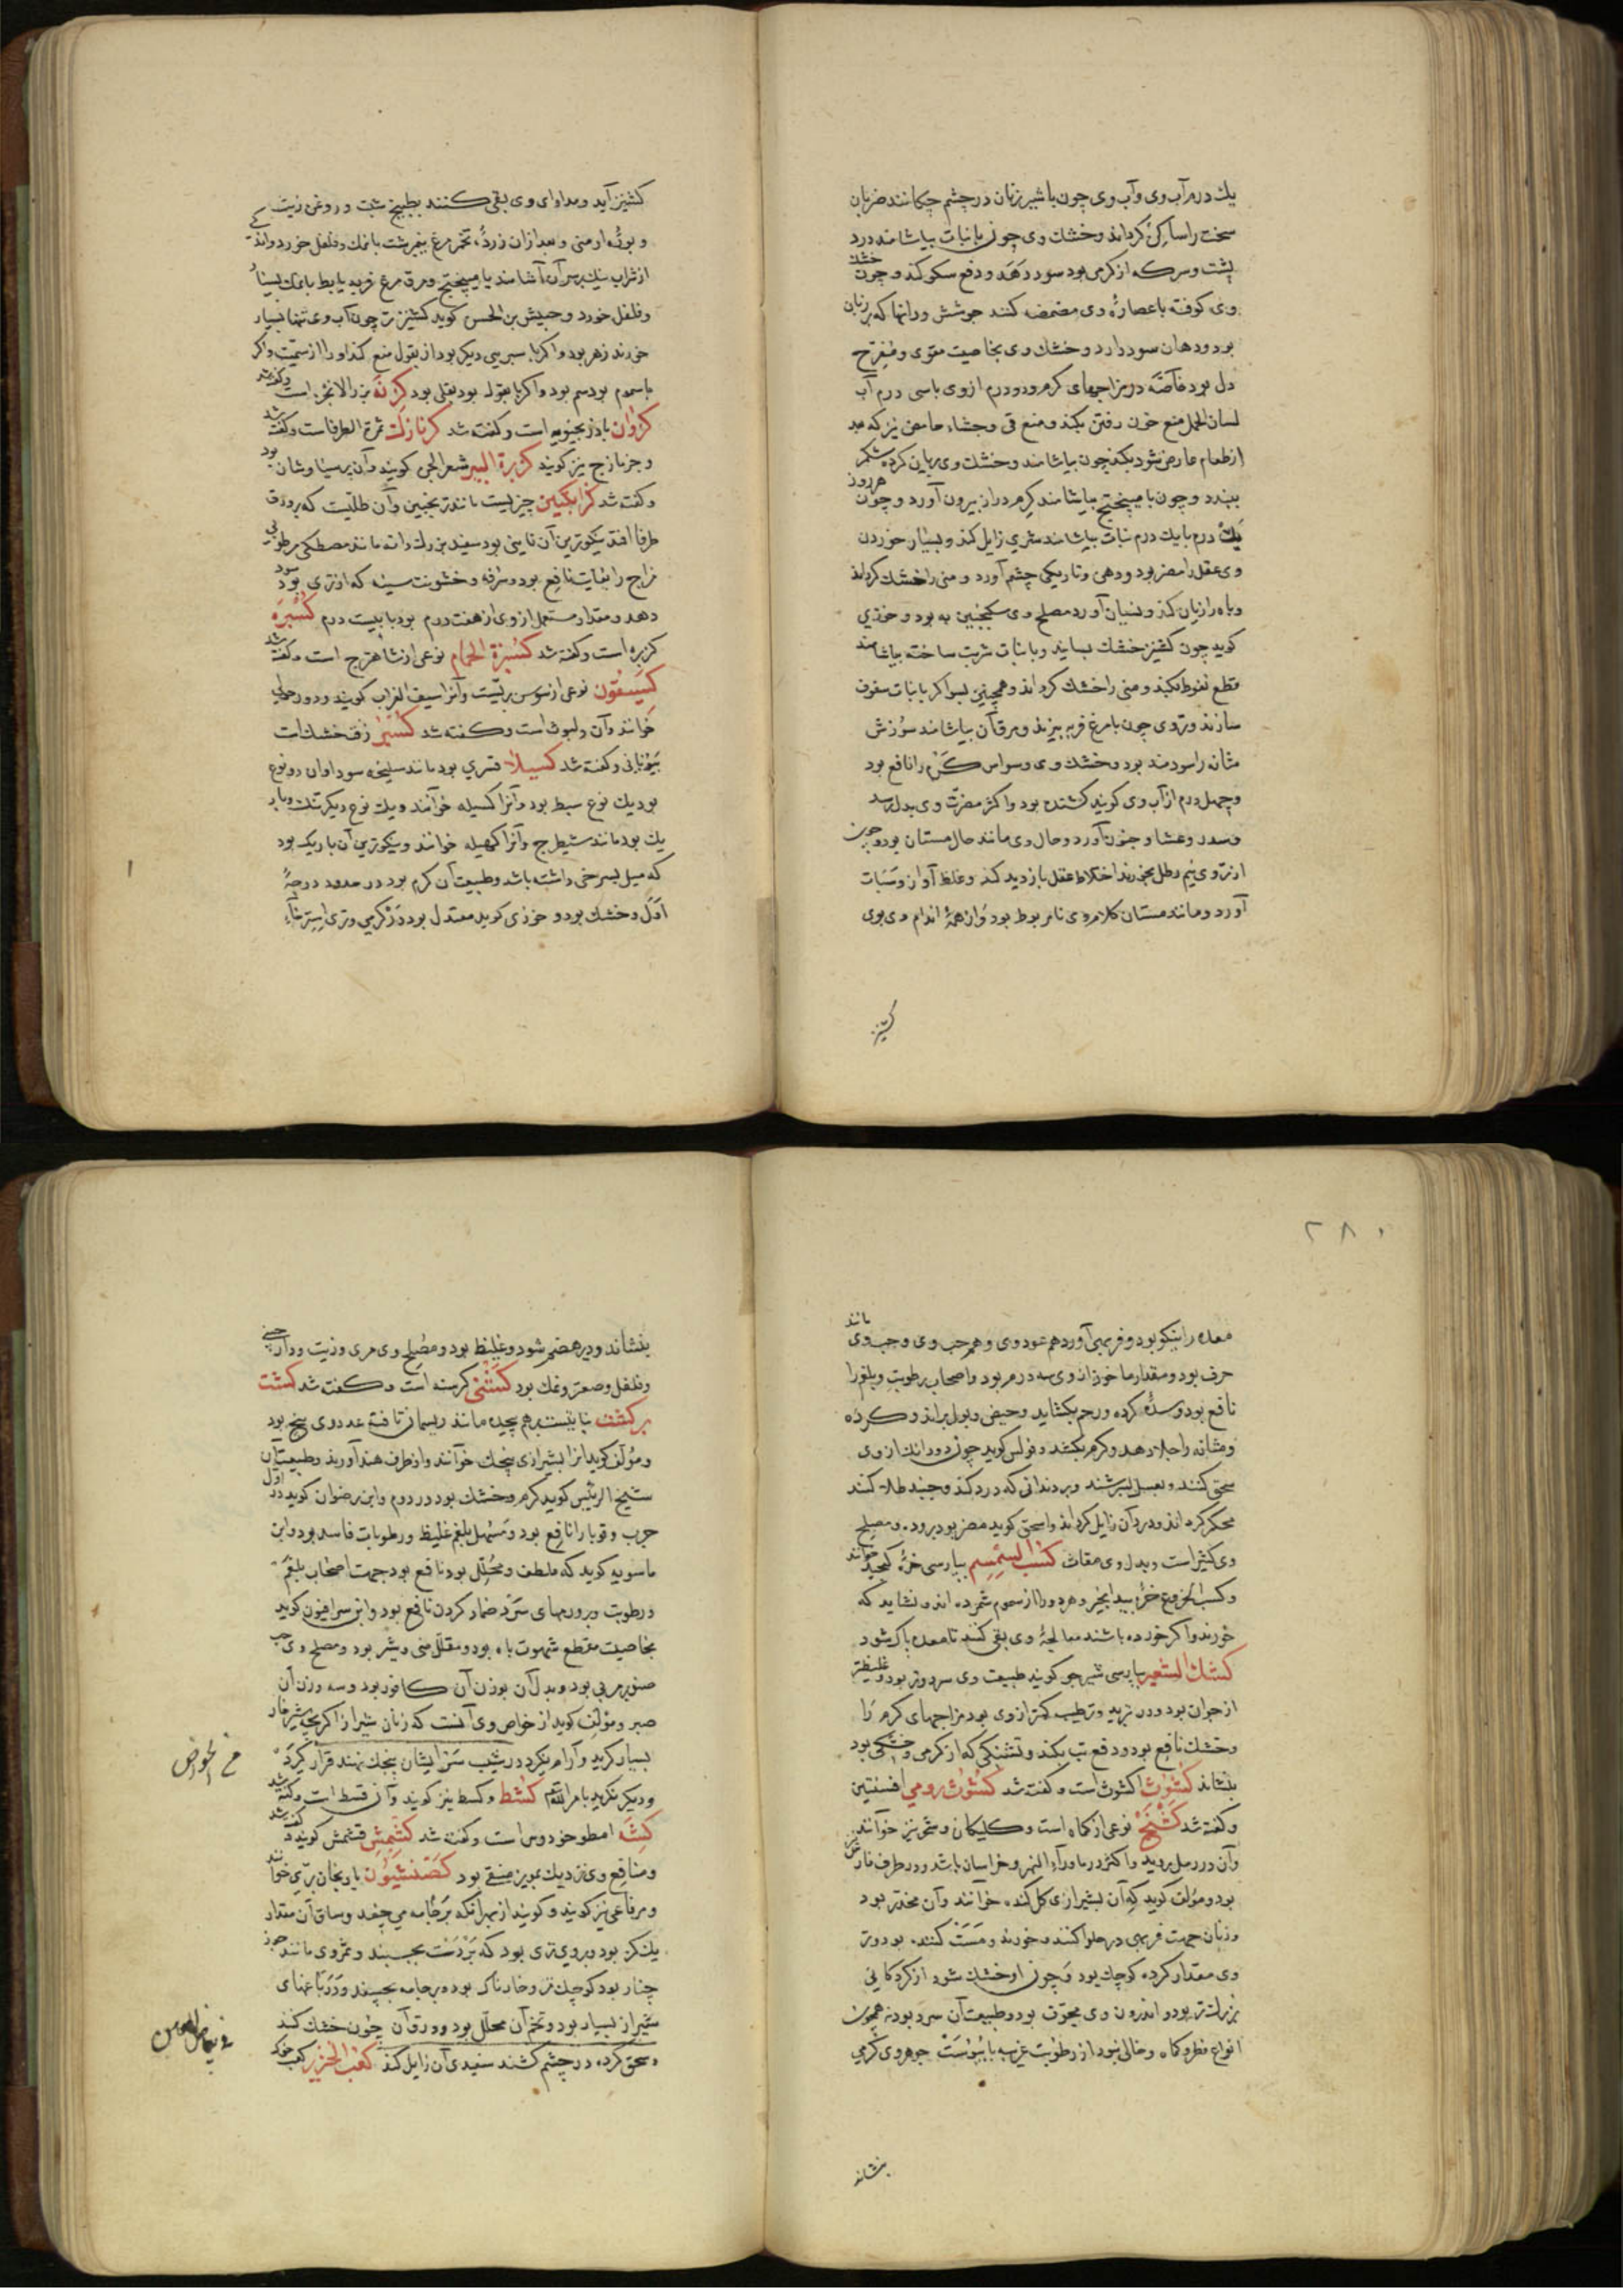 یك درم آب وی وآب وی چون با شیر زنان در چشم چکانند ضربان
سخت را ساکن کرداند وخشك وی چون با نبات بیاشامند درد
پشت وسرکه از کرمی بود سود دهد ودفع سکر کند وچون خشك
وی کوفته با عصارهٔ وی مضمضه کنند جوشش ودانها که بر زبان
بود ودهان سود دارد وخشك وی بخاصیت مقوی ومفرح
دل بود خاصّه در مزاجهای کرم ودو درم از وی باسی درم آب
لسان الحمل منع خون رفتن بکند ومنع قی وجشاء حامض نیز که بعد
از طعام عارض شود بکند چون بیاشامند وخشك وی بریان کرده شکم
ببندد وچون با میبختج بیاشامند کرم دراز بیرون آورد وچون هر روز
یك درم با یك درم نبات بیاشامند شری زایل کند وبسیار خوردن
وی عقل را مضر بود وذهن وتاریکی چشم آورد ومنی را خشك کرداند
وباه را زیان کند ونسیان آورد مصلح وی سکنجبین به بود وخوزی
کوید چون کشنیز خشك بسایند وبا نبات شربت ساخته بیاشامند
قطع نعوظ بکند ومنی را خشك کرداند وهمچنین بسوا کر با نبات سفوف
سازند وتر وی چون با مرغ فربه بپزند ومرق آن بیاشامند سوزش
مثانه را سودمند بود وخشك وی وسواس کرم را نافع بود
وچهل درم از آب وی کویند کشنده بود واکثر مضرت وی بدل رسد
وسدر وغشا وجنون آورد وحال وی مانند حال مستان بود وچون
از تر وی نیم رطل بخورند اختلاط عقل بازدید کند وغلظ آواز وسبات
آورد ومانند مستان کلام وی نامربوط بود واز همهٔ اندام وی بوی
کشنیز
کشنیز آید ومداوای وی بقی کنند بطبیخ شبت وروغن زیت
وبورهٔ ارمنی وبعد از آن زردهٔ تخم مرغ نیمرشت با نمك وفلفل خورد واند کی
از شراب نیك برسر آن آشامند یا میبختج ومرق مرغ فربه یا بط با نمك بسیار
وفلفل خورد وحبیش بن الحسن کوید کشنیز تر چون آب وی تنها بسیار
خورند زهر بود واکر با سبزیی دیکر بود از بقول منع کند او را از سمیّت واکر
با سموم بود سم بود واکر با بقول بود بقلی بود کزنه بزر الانجره است وکفته شد
کزوان بادرنجبویه است وکفته شد کزمازك ثمرة الطرفا است وکفته شد
وجزمازج نیز کویند کزبرة البیر شعر الجن کویند وآن پرسیاوشان بود
وکفته شد کزانکبین چیزیست مانند ترنجبین وآن طلّیست که برورق
طرفا افتد نیکوترین آن تا سنی بود سفید بزرك دانه مانند مصطکی مرطوبی
مزاج را بغایت نافع بود وسرفه وخشونت سینه که از تری بود سود
دهد ومقدار مستعمل از وی از هفت درم بود تا بیست درم کسبره
کزبره است وکفته شد کسبرة الحمام نوعی از شاهترج است وکفته شد
کسیفون نوعی از سوسن بریست وآنرا سیف الغراب کویند ودور حولی
خوانند وآن دلبوث است وکفته شد کستیر زفت خشك است
بیونانی وکفته شد کسیلا قشری بود مانند سلیخه سود اوان دو نوع
بود یك نوع سبط بود وآنرا کسیله خوانند ویك نوع دیکر تنك وبار
یك بود مانند شیطرج وآنرا کهیله خوانند ونیکوترین آن باریك بود
که میل بسرخی داشته باشد وطبیعت آن کرم بود در حدود درجهٔ
اوّل وخشك بود وخوزی کوید معتدل بود در کرمی وتری استرخاء
۲۸۰
معده را نیکو بود وفربهی آورد هم عود وی وهم حب وی وحب وی مانند
حرف بود ومقدار ماخوذ از وی سه درم بود واصحاب رطوبت وبلغم را
نافع بود وسدهٔ کرده ورحم بکشاید وحیض وبول براند وکرده
ومثانه را جلا دهد وکرم بکشد وفولس کوید چون دو دانك از وی
سحق کنند وبعسل بسرشند وبر دندانی که درد کند وجنبد طلا کنند
محکم کرداند ودرد آن زایل کرداند واسحق کوید مضر بود برود. ومصلح
وی کثیر است وبدل وی مغاث کسب السمسم بپارسی خرهٔ کنجد خوانند
وکسب الخروع خرهٔ بید انجیر وهر دو را از سموم شمرده اند ونشاید که
خورند واکر خورده باشند معالجهٔ وی بقی کنند تا معده پاك شود
کشك الشعیر بپارسی شیر جو کویند طبیعت وی سرد وتر بود وغلیظتر
از جو آن بود ودر تبرید وترطیب کمتر از وی بود مزاجهای کرم را
وخشك نافع بود ودفع تب بکند وتشنکی که از کرمی وخشکی بود
بنشاند کشوث اکشوث است وکفته شد کشوث رومی افسنتین
وکفته شد کشنج نوعی از کماه است وکلیکان وشخ نیز خوانند
وآن در رمل بروید واکثر در ماوراء النهر وخراسان باشد ودر طرف فارس نیز
بود ومؤلف کوید که آن بشیرازی کل کنده خوانند وآن مخدر بود
وزنان جهت فربهی در حلوا کنند وخورند ومست کننده بود وتر
وی مقدار کرده کوچك بود وچون او خشك شود از کردکانی
بزرك تر بود واندرون وی مجوف بود وطبیعت آن سرد بود نه همچون
انواع فطر وکماه وخالی نبود از رطوبت غریبه با یبوست جوهر وی کرمی
بنشاند
بنشاند ودیر هضم شود وغلیظ بود ومصلح وی مری وزیت ودارچینی
وفلفل وصعتر ونمك بود کشنی کرسنه است وکفته شد کشت
بر کشت نباتیست برهم پیچیده مانند ریسمان تافته عدد وی پنج بود
ومؤلف کوید آنرا بشیرازی پیچك خوانند واز طرف هند آورند وطبیعت آن
شیخ الرئیس کوید کرم وخشك بود در دوم وابن رضوان کوید در اول
جرب وقوبا را نافع بود ومسهل بلغم غلیظ ورطوبات فاسد بود وابن
ماسویه کوید که ملطف ومحلّل بود نافع بود جهت اصحاب بلغم
ورطوبت وورمهای سرد ضماد کردن نافع بود وابن سرافیون کوید
بخاصیت مقطع شهوت باه بود ومقلل منی وشیر بود ومصلح وی حب
صنوبر مربی بود وبدل آن بوزن آن کافور بود وسه وزن آن
صبر ومؤلف کوید از خواص وی آنست که زنان شیراز اکر بچه شیرخوار
بسیار کرید وآرام نکیرد در شیب سر ایشان پیچك نهند قرار کیرد
ودیکر نکرید بامر الله کشط وکسط نیز کویند وآن قسط است وکفته شد
کشه امطوخودوس است وکفته شد کشمش قشمش کویند کفته شد
ومنافع وی نزدیك بمویز منقی بود کصنثیون بادنجان بری خوانند
ومرقاعی نیز کویند وکویند از بهر آنکه بر جامه می چفسد وساق آن مقدار
یك کز بود وبروی تری بود که بر دست بچسبد وثمر وی مانند جوز
چنار بود کوچك تر وخارناك بود وبر جامه بچسپد ودر باغهای
شیراز بسیار بود وتخم آن محلّل بود وورق آن چون خشك کند
وسحق کرده در چشم کشند سفیدی آن زایل کند کعب الخنزیر کعب خوك
من الخواص